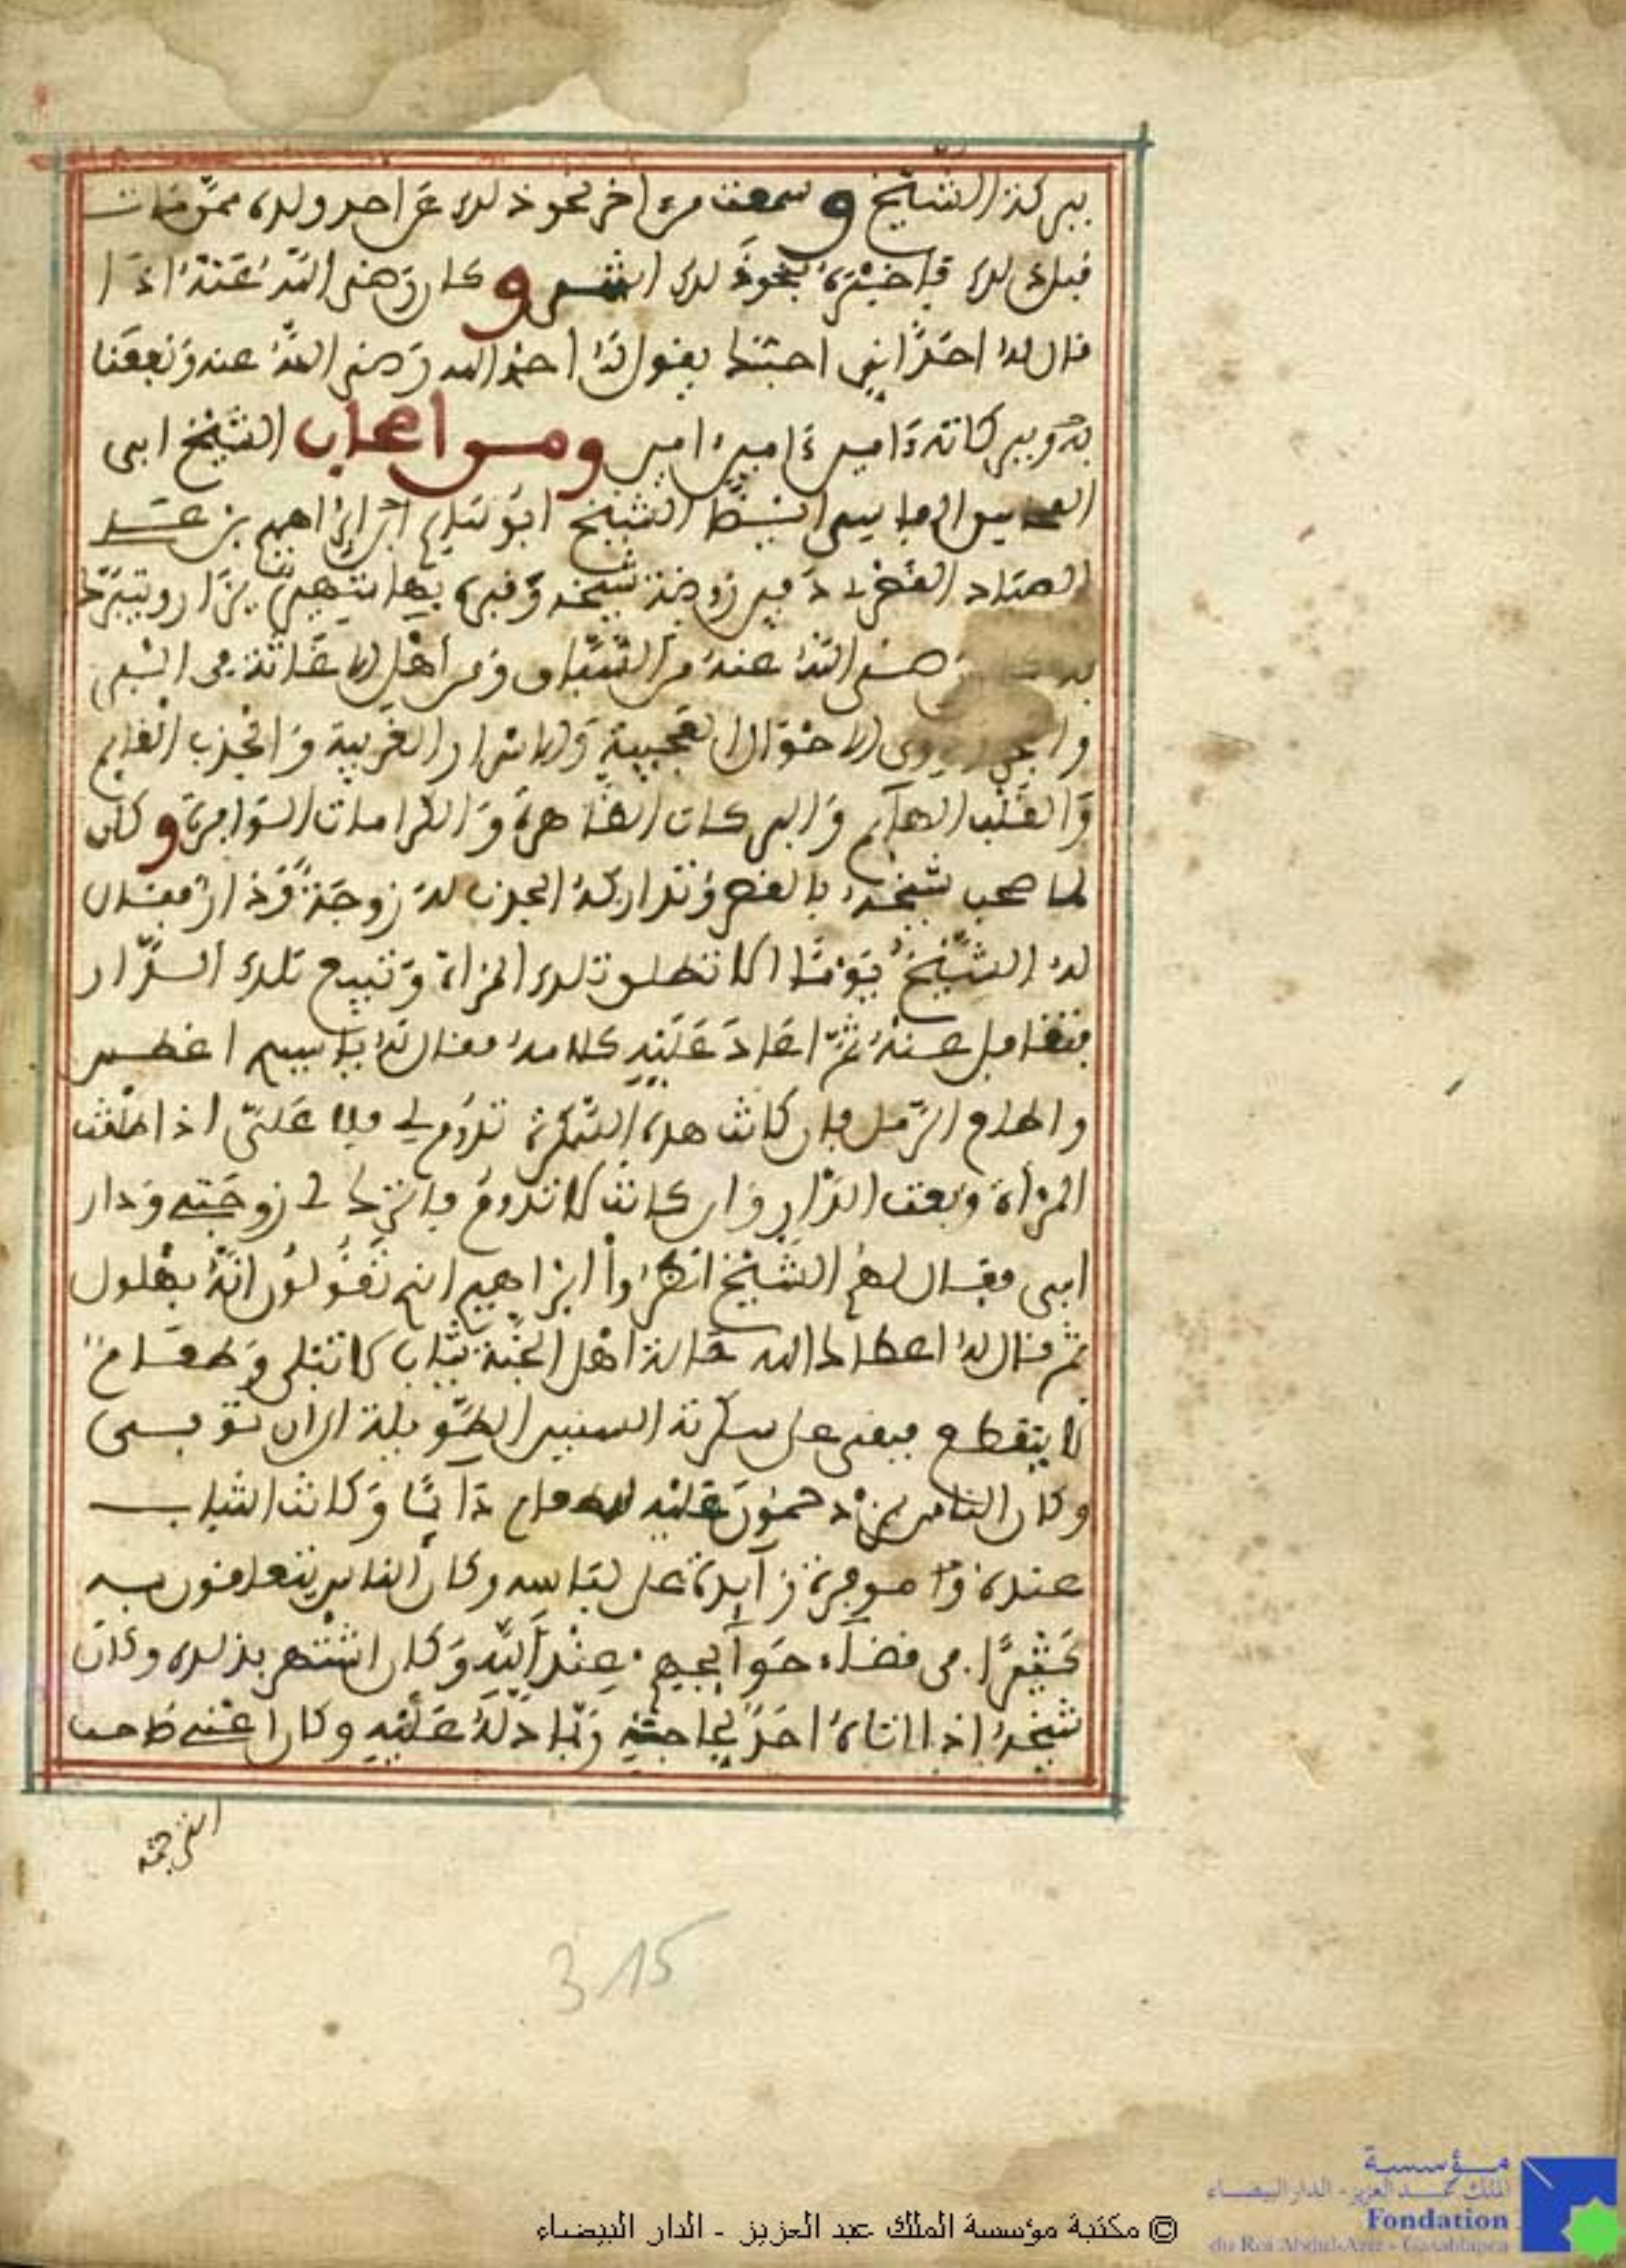 ببركة الشيخ وسمعت مرة اخرى نحو ذلك عن احد ولده ممن مات
قبل ذلك فاخبره بنحو ذلك انتهى وكان رضي الله عنه اذا
قال له احد اني احبك يقول له احبك الله رضي الله عنه ونفعنا
به وببركاته ءامين ءامين ءامين ومن اصحاب الشيخ ابي
المحاسن الفاسي ايضا الشيخ ابو سالم ابراهيم بن عبد
الصياد دفين روضة شيخه وقبره بها شهير يزار ويتبرك
به رضي الله عنه من السباق ومن اهل الاغاثة في
وا ذوي الاحوال العجيبة والاسرار الغريبة والجذب القايم
والقلب الهآيم والبركات الظاهرة والكرامات الوافرة وكان
لما صحب شيخه بالقصر وتداركه الجذب له زوجة ودار فقال
له الشيخ يوما الا تطلق تلك المرأة وتبيع تلك الدار
فتغافل عنه ثم اعاد عليه كلامه فقال له يا سيدي
فان كانت هذه السكرة تدوم لي فلا علي اذا طلقت
المرأة وبعت الدار وان كانت لا تدوم فاترك لي زوجتي ودار
ابي فقال لهم الشيخ انظروا ابراهيم انتم تقولون انه بهلول
ثم قال له اعطاك الله حالة اهل الجنة ثياب لا تبلى وطعام
لا ينقطع فبقي على سكرته السنين الطويلة الى ان توفي
وكان الناس يزدحمون عليه دآئما وكانت الثياب
عنده وا موفرة زآيدة على لباسه وكان الناس يتعلقون به
كثيرا في قضآء حوآيجهم عند الله وكان اشتهر بذلك وكان
شيخه اذا اتاه احد لحاجته ربما دله عليه وكان اعني صاحب
الترجمة
3 15
© مكتبة مؤسسة الملك عبد العزيز - الدار البيضاء
مؤسسة
الملك عبد العزيز - الدار البيضاء
Fondation
du Roi Abdul-Aziz - Casablanca